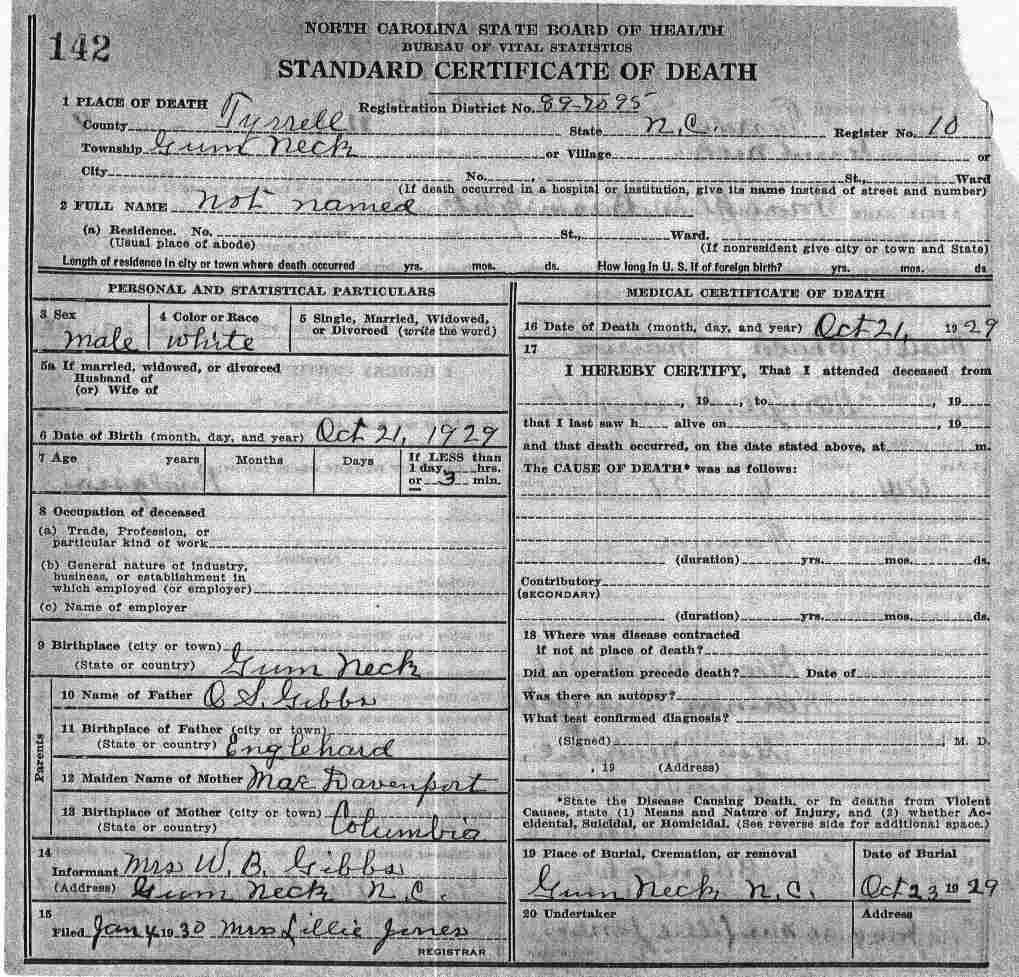 142
NORTH CAROLINA STATE BOARD OF HEALTH
BUREAU OF VITAL STATISTICS
STANDARD CERTIFICATE OF DEATH
1 PLACE OF DEATH Registration District No. 89-7095
County Tyrrell State N.C. Register No. 10
Township Gum Neck or Village or
City No. , St., Ward
(If death occurred in a hospital or institution, give its name instead of street and number)
2 FULL NAME Not named
(a) Residence. No. St., Ward.
(Usual place of abode) (If nonresident give city or town and State)
Length of residence in city or town where death occurred yrs. mos. ds. How long in U. S. if of foreign birth? yrs. mos. ds
PERSONAL AND STATISTICAL PARTICULARS
3 Sex 4 Color or Race 5 Single, Married, Widowed,
or Divorced (write the word)
male white
5a If married, widowed, or divorced
Husband of
(or) Wife of
6 Date of Birth (month, day, and year) Oct 21, 1929
7 Age years Months Days If LESS than
1 day, hrs.
or 3 min.
8 Occupation of deceased
(a) Trade, Profession, or
particular kind of work
(b) General nature of industry,
business, or establishment in
which employed (or employer)
(c) Name of employer
9 Birthplace (city or town)
(State or country) Gum Neck
Parents
10 Name of Father O S. Gibbs
11 Birthplace of Father (city or town)
(State or country) Englehard
12 Maiden Name of Mother Mae Davenport
13 Birthplace of Mother (city or town)
(State or country) Columbia
14
Informant Mrs W. B. Gibbs
(Address) Gum Neck N.C.
15
Filed Jan 4 1930 Mrs Lillie Jones
REGISTRAR
MEDICAL CERTIFICATE OF DEATH
16 Date of Death (month, day, and year) Oct 21, 1929
17
I HEREBY CERTIFY, That I attended deceased from
, 19 , to , 19
that I last saw h alive on , 19
and that death occurred, on the date stated above, at m.
The CAUSE OF DEATH* was as follows:
(duration) yrs. mos. ds.
Contributory
(SECONDARY)
(duration) yrs. mos. ds.
18 Where was disease contracted
if not at place of death?
Did an operation precede death? Date of
Was there an autopsy?
What test confirmed diagnosis?
(Signed) , M. D.
, 19 (Address)
*State the Disease Causing Death, or in deaths from Violent
Causes, state (1) Means and Nature of Injury, and (2) whether Ac-
cidental, Suicidal, or Homicidal. (See reverse side for additional space.)
19 Place of Burial, Cremation, or removal Date of Burial
Gum Neck N.C. Oct 23 1929
20 Undertaker Address